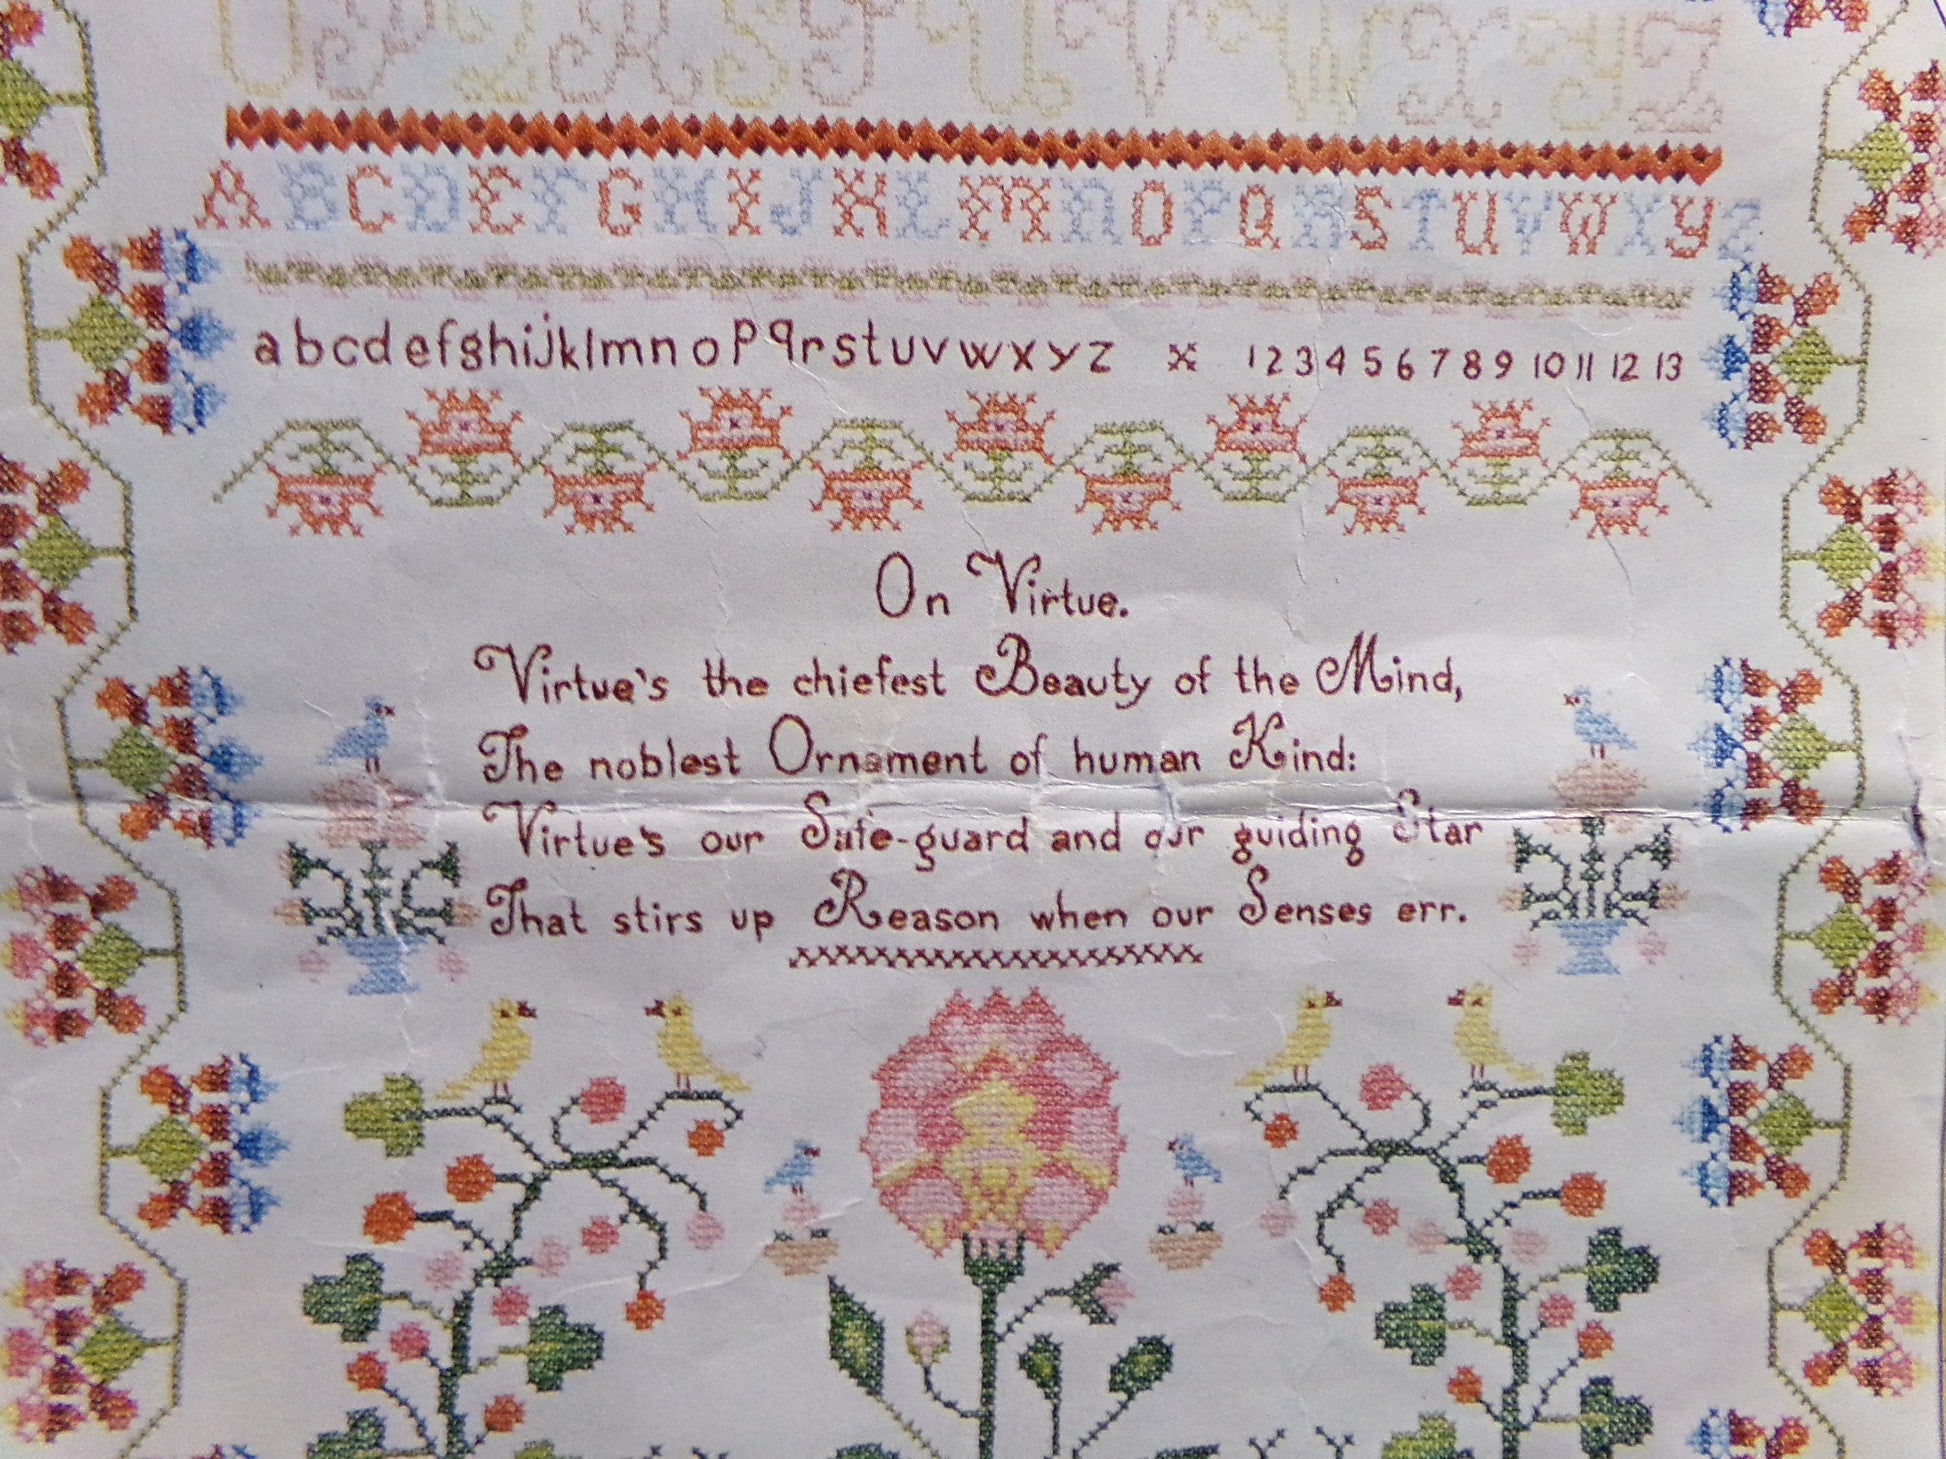 O P Q R S T U V W X Y Z
A B C D E F G H I J K L M N O P Q R S T U V W X Y Z
a b c d e f g h i j k l m n o p q r s t u v w x y z 1 2 3 4 5 6 7 8 9 10 11 12 13
On Virtue.
Virtue's the chiefest Beauty of the Mind,
The noblest Ornament of human Kind:
Virtue's our Safe-guard and our guiding Star
That stirs up Reason when our Senses err.